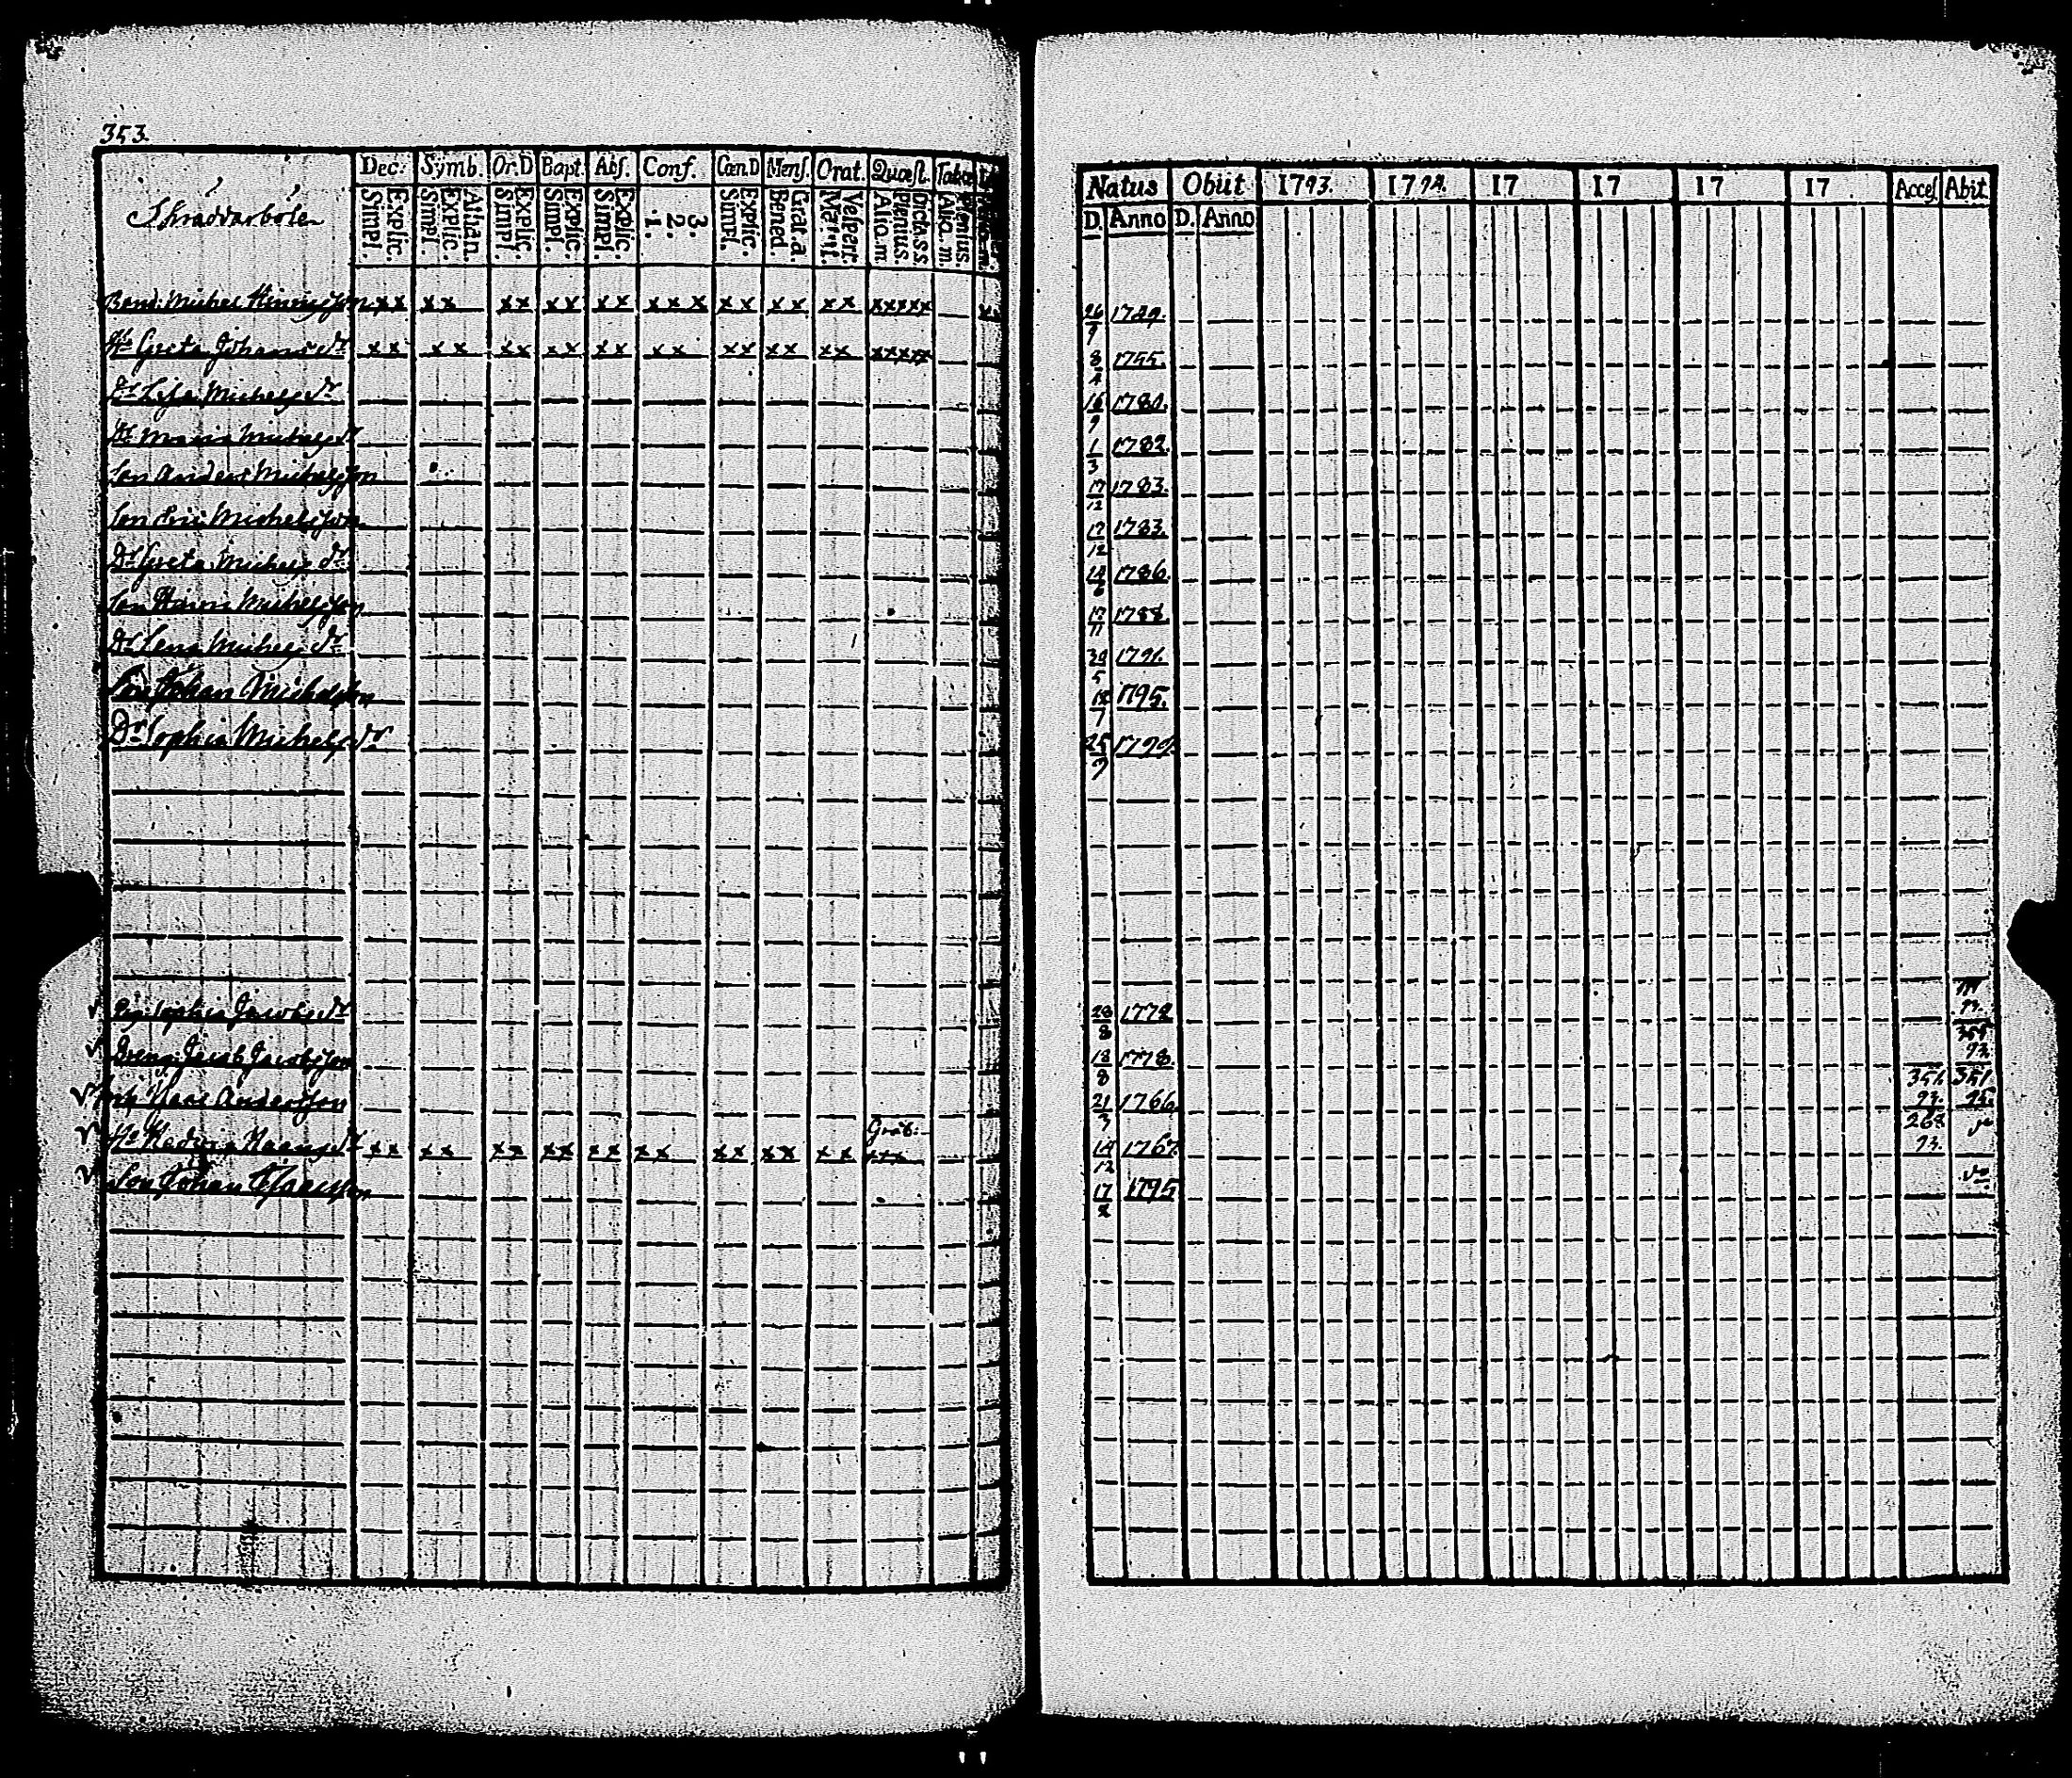 353.
Skräddarböle
Dec. Symb. Or.D Bapt. Abs. Conf. Cœn.D Mens. Orat. Quæst.
Simpl. Explic. Simpl. Explic. Athan. Simpl. Explic. Simpl. Explic. Simpl. Explic. 1. 2. 3. Simpl. Explic. Bened. Grat.a. Vespert. Alio.m Plenius Dicta.s.s Alio.m. Plenius.
Natus Obiit 1793. 1794. 17 17 17 17 Acces Abit
D. Anno D. Anno
Bond. Michel xx xx xx xx xx xxx xx xx xx xxxxx 26/9 1749.
H. Greta Johansdr xx xx xx xx xx xx xx xx xx xxxxx 8/4 1755.
Dr Lisa Michelsdr 16/9 1780.
Dr Maria Michelsdr 1/3 1782.
Son Anders Michelsson 17/12 1783.
Son Eric Michelsson 17/12 1783.
Dr Greta Michelsdr 14/6 1786.
Son Michelsson 17/11 1788.
Dr Lena Michelsdr 30/5 1791.
Son Johan Michelsson 18/7 1795.
Dr Sophia Michelsdr 25/9 1799.
Pig. Sophia Jacobsdr 20/8 1772 93.
Dreng. Jacob Jacobsson 18/8 1778. 355 93.
Inh. Isaac Andersson 21/3 1766. 351. 93. 351.
H. Hedvig xx xx xx xx xx xx xx xx xx Gråt: xxx 14/12 1767. 268 93.
Son Johan Isaacsson 17/2 1795